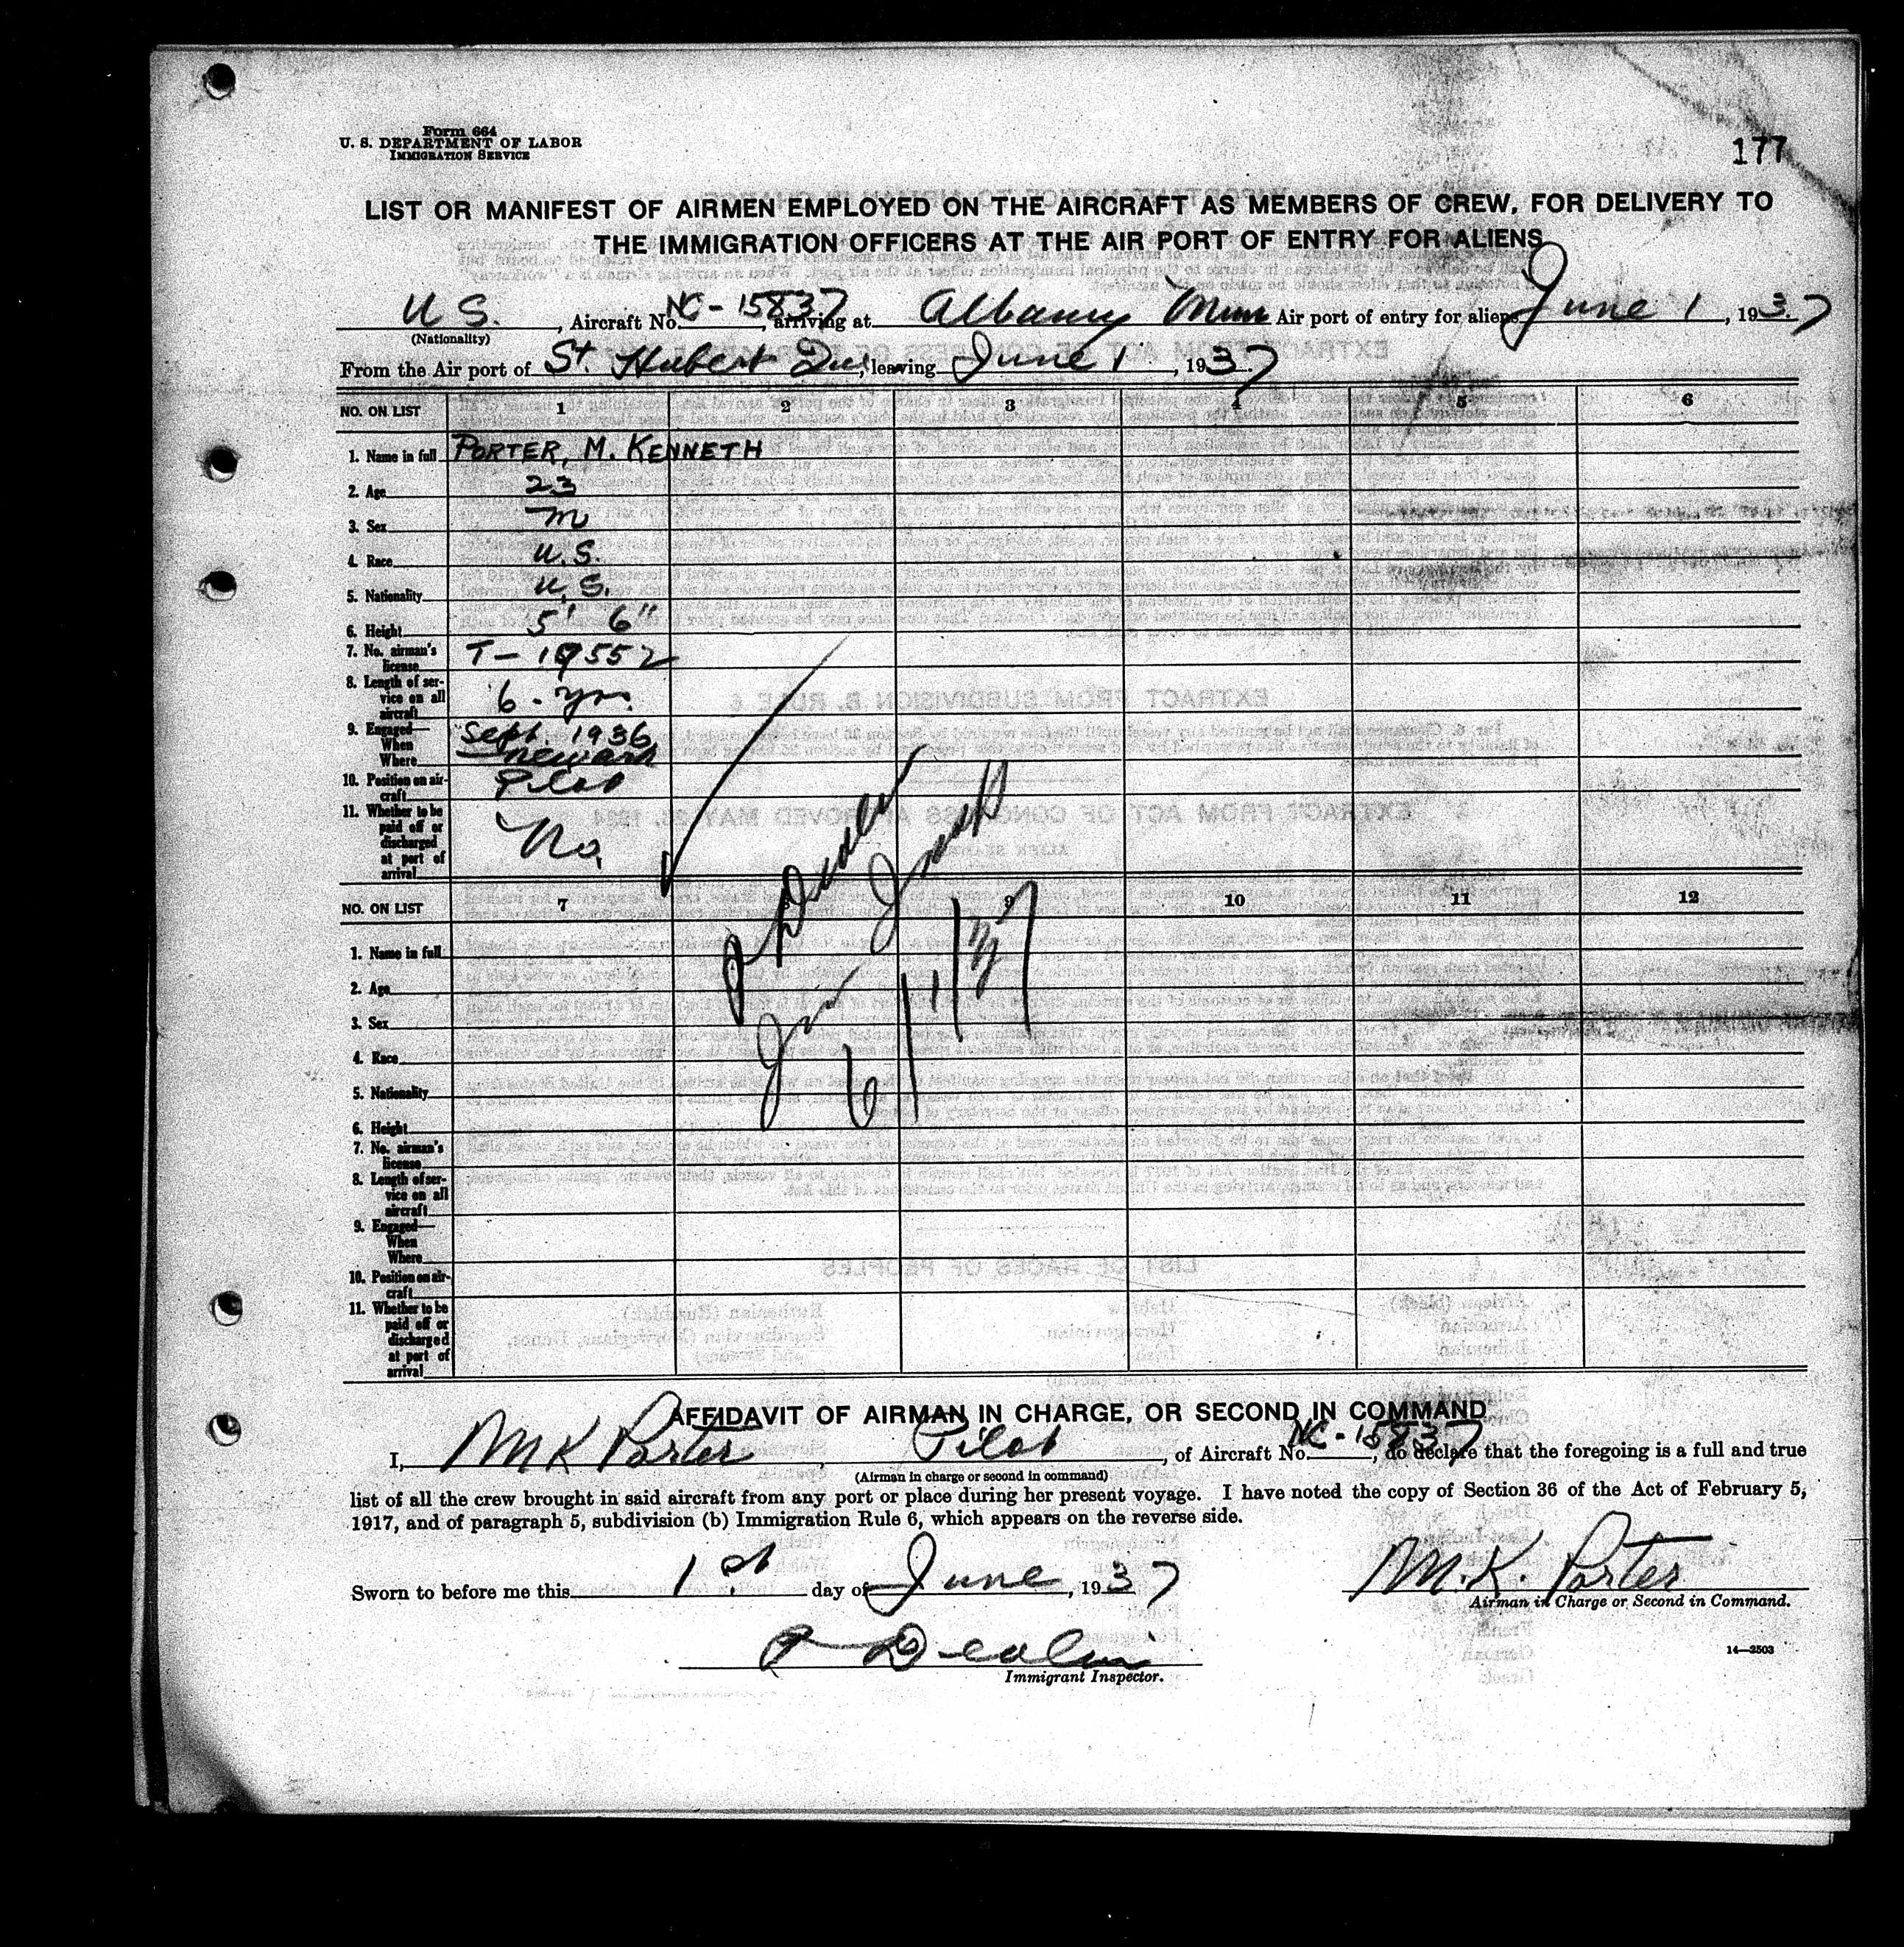 Form 664
U. S. DEPARTMENT OF LABOR
IMMIGRATION SERVICE
177
LIST OR MANIFEST OF AIRMEN EMPLOYED ON THE AIRCRAFT AS MEMBERS OF CREW, FOR DELIVERY TO
THE IMMIGRATION OFFICERS AT THE AIR PORT OF ENTRY FOR ALIENS
U S., Aircraft No. NC-15837, arriving at Albany Air port of entry for aliens June 1, 1937
(Nationality)
From the Air port of St. Hubert Que, leaving June 1, 1937
NO. ON LIST 1 2 3 4 5 6
1. Name in full PORTER, M. KENNETH
2. Age 23
3. Sex M
4. Race U.S.
5. Nationality U.S.
6. Height 5' 6"
7. No. airman's
license T-19552
8. Length of ser-
vice on all
aircraft 6-yrs.
9. Engaged—
When Sept. 1936
Where Newark
10. Position on air-
craft Pilot
11. Whether to be
paid off or
discharged
at port of
arrival No.
NO. ON LIST 7 9 10 11 12
1. Name in full
2. Age
3. Sex
4. Race
5. Nationality
6. Height
7. No. airman's
license
8. Length of ser-
vice on all
aircraft
9. Engaged—
When
Where
10. Position on air-
craft
11. Whether to be
paid off or
discharged
at port of
arrival
6/1/37
AFFIDAVIT OF AIRMAN IN CHARGE, OR SECOND IN COMMAND
I, M K Porter, Pilot, of Aircraft No. NC-15837, do declare that the foregoing is a full and true
(Airman in charge or second in command)
list of all the crew brought in said aircraft from any port or place during her present voyage. I have noted the copy of Section 36 of the Act of February 5,
1917, and of paragraph 5, subdivision (b) Immigration Rule 6, which appears on the reverse side.
Sworn to before me this 1st day of June, 1937
M.K. Porter
Airman in Charge or Second in Command.
14—2503
Immigrant Inspector.